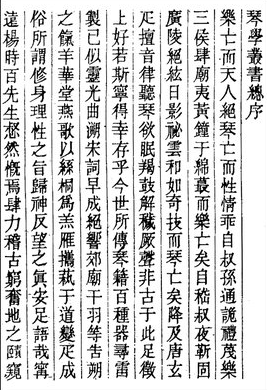 琴學叢書總序
樂亡而天人絕琴亡而性情乖自叔孫通詭禮蔑樂
三侯肆廟夷黃鐘于綿蕞而樂亡矣自嵇叔夜靳固
廣陵絕絃日影祕雲和如奇技而琴亡矣降及唐玄
疋擅音律聽琴欲眠羯鼓解穢厥聲非古于此足徵
上好若斯寧得幸存乎今世所傳琴籍百種器尋雷
製已似靈光曲溯宋詞早成絕響郊廟干羽等告朔
之餼羊華堂燕歌以絲桐爲羔雁攜蓺于道變疋成
俗所謂修身理性之旨歸神反望之眞安足語哉甯
遠楊時百先生惄然慨焉肆力稽古窮奮地之賾窺